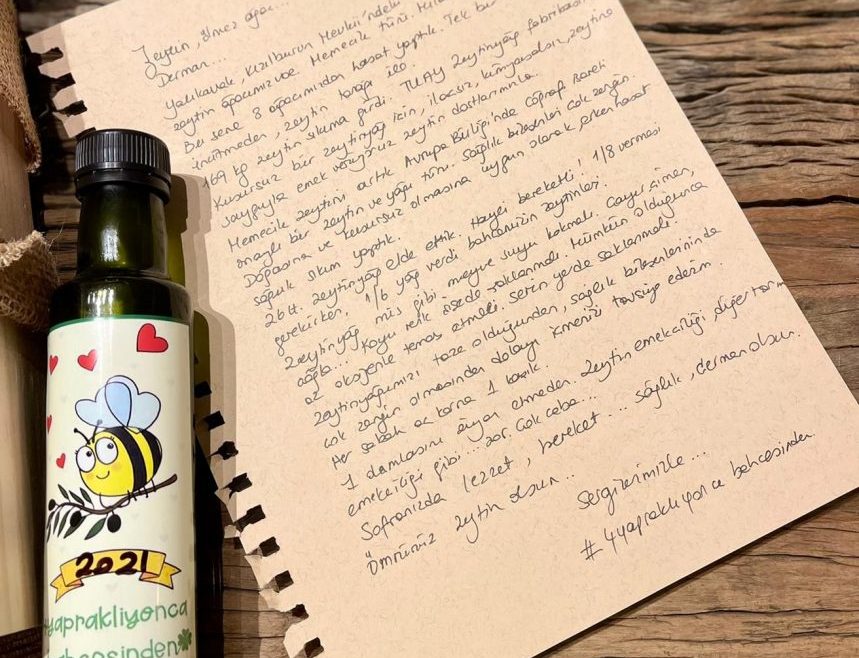 Zeytin, ölmez ağacı...
Derman...
Yalıkavak, Kızılburun Mevkii'ndeki
zeytin ağacımızve. Memecik türü.
Bu sene 8 ağacımızdan hasat yaptık. Tek
incitmeden, zeytin tarağı ile.
169 kg zeytin sıkıma girdi. TUAY Zeytinyağ fabrikası
Kusursuz bir zeytinyağ için, ilaçsız, kimyasalsız, zeytine
saygıyla emek veriyoruz zeytin dostlarımızla.
Memecik zeytini artık Avrupa Birliği'nde Coğrafi İşareti
onaylı bir zeytin ve yağı türü. Sağlık bileşenleri çok zengin.
Doğasına ve kusursuz olmasına uygun olarak, erken hasat
soğuk sıkım yaptık.
26 lt. zeytinyağ elde ettik. Hayli bereketli! 1/8 vermesi
gerekirken, 1/6 yağ verdi bahçemizin zeytinleri.
Zeytinyağ mis gibi meyve suyu kokmalı. Çayır çimen,
ağla... Koyu renk şişede saklanmalı. Mümkün olduğunca
az oksijenle temas etmeli. Serin yerde saklanmalı.
Zeytinyağımızı taze olduğundan, sağlık bileşenlerinin de
çok zengin olmasından dolayı içmenizi tavsiye ederim.
Her sabah aç karna 1 kaşık.
1 damlasını ziyan etmeden. Zeytin emekçiliği, diğer tarım
emekçiliği gibi... zor. Çok çaba...
Sofranızda lezzet, bereket... sağlık, derman olsun.
Ömrünüz zeytin olsun..
Sevgilerimizle...
#4yapraklıyonca bahçesinden
2021
yapraklıyonca
bahçesinden